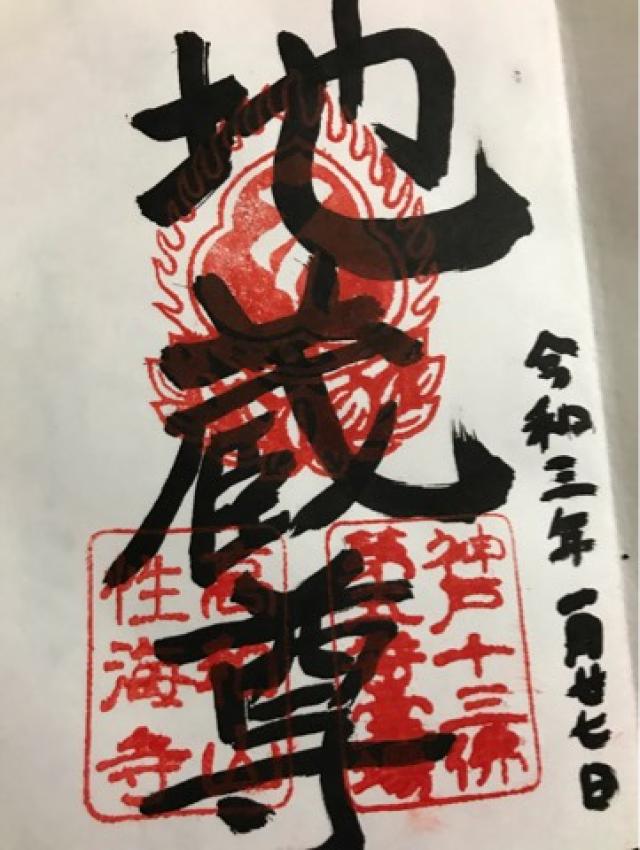 令和三年一月廿七日
地蔵尊
神戸十三佛
第五番霊場
高和山
性海寺